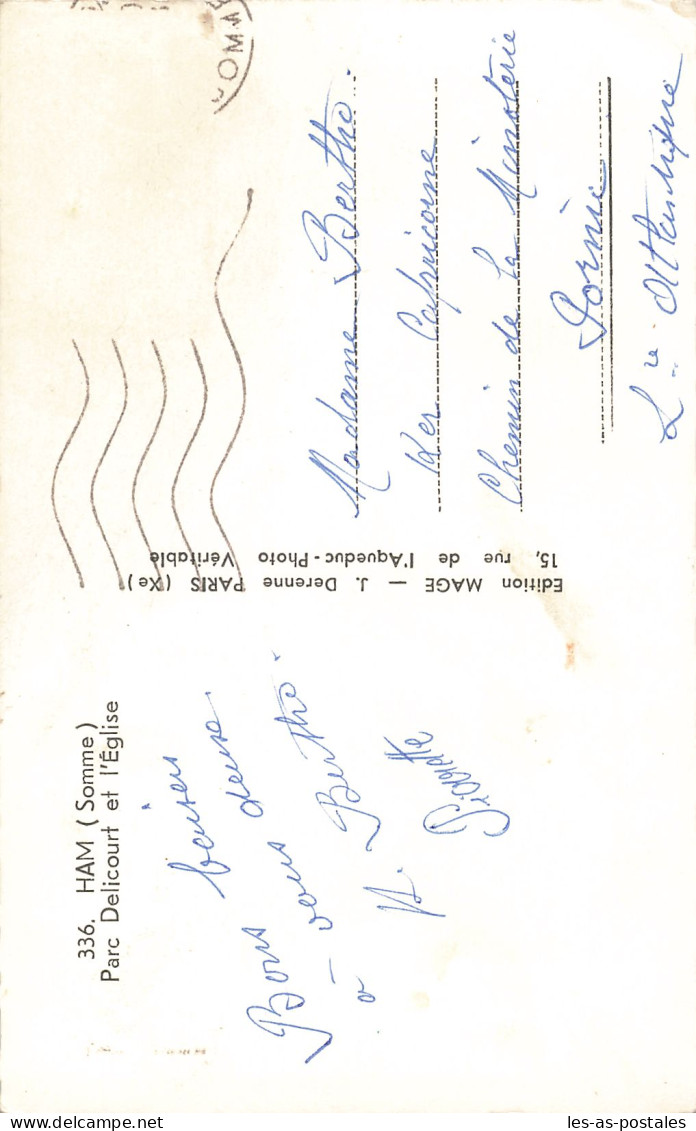 336. HAM (Somme)
Parc Delicourt et l'Église
Bons baisers
à vous deux.
Berthe.
Edition MAGE — J. Derenne PARIS (Xe)
15, rue de l'Aqueduc - Photo Véritable
Madame Bertho.
Ker Capricorne
Chemin de la Minoterie
Pornic
L.re Atlantique
les-as-postales